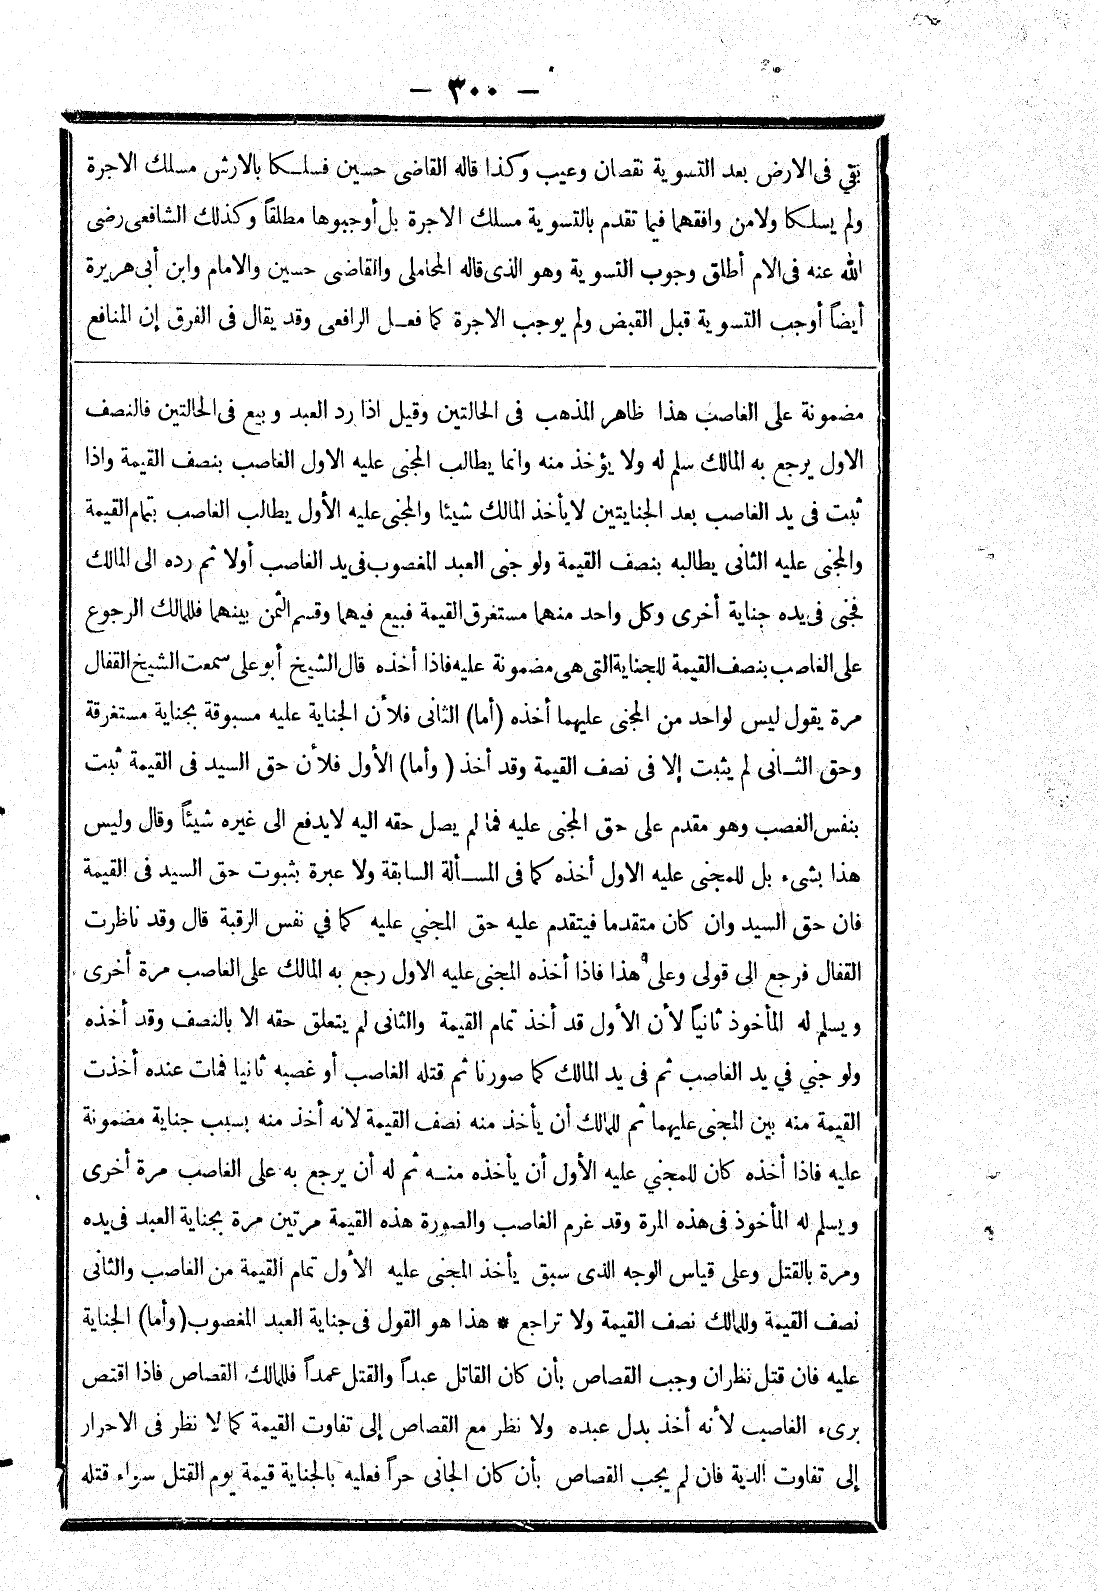 — ٣٠٠ —
بقي فى الارض بعد التسوية نقصان وعيب وكذا قاله القاضى حسين فسلكا بالارش مسلك الاجرة
ولم يسلكا ولا من وافقهما فيما تقدم بالتسوية مسلك الاجرة بل أوجبوها مطلقاً وكذلك الشافعى رضى
الله عنه فى الام أطلق وجوب التسوية وهو الذى قاله المحاملى والقاضى حسين والامام وابن أبى هريرة
أيضاً أوجب التسوية قبل القبض ولم يوجب الاجرة كما فعل الرافعى وقد يقال فى الفرق إن المنافع
مضمونة على الغاصب هذا ظاهر المذهب فى الحالتين وقيل اذا رد العبد وبيع فى الحالتين فالنصف
الاول يرجع به المالك سلم له ولا يؤخذ منه وانما يطالب المجنى عليه الاول الغاصب بنصف القيمة واذا
ثبت فى يد الغاصب بعد الجنايتين لا يأخذ المالك شيئا والمجنى عليه الأول يطالب الغاصب بتمام القيمة
والمجنى عليه الثانى يطالبه بنصف القيمة ولو جنى العبد المغصوب فى يد الغاصب أولا ثم رده الى المالك
فجنى فى يده جناية أخرى وكل واحد منهما مستغرق القيمة فبيع فيهما وقسم الثمن بينهما فللمالك الرجوع
على الغاصب بنصف القيمة للجناية التى هى مضمونة عليه فاذا أخذه قال الشيخ أبو على سمعت الشيخ القفال
مرة يقول ليس لواحد من المجنى عليهما أخذه (أما) الثانى فلأن الجناية عليه مسبوقة بجناية مستغرقة
وحق الثانى لم يثبت إلا فى نصف القيمة وقد أخذ ( وأما) الأول فلأن حق السيد فى القيمة ثبت
بنفس الغصب وهو مقدم على حق المجنى عليه فما لم يصل حقه اليه لا يدفع الى غيره شيئاً وقال وليس
هذا بشىء بل للمجنى عليه الاول أخذه كما فى المسألة السابقة ولا عبرة بثبوت حق السيد فى القيمة
فان حق السيد وان كان متقدما فيتقدم عليه حق المجني عليه كما في نفس الرقبة قال وقد ناظرت
القفال فرجع الى قولى وعلى هذا فاذا أخذه المجنى عليه الاول رجع به المالك على الغاصب مرة أخرى
ويسلم له المأخوذ ثانياً لأن الأول قد أخذ تمام القيمة والثانى لم يتعلق حقه الا بالنصف وقد أخذه
ولو جني في يد الغاصب ثم فى يد المالك كما صورنا ثم قتله الغاصب أو غصبه ثانيا فمات عنده أخذت
القيمة منه بين المجنى عليهما ثم للمالك أن يأخذ منه نصف القيمة لانه أخذ منه بسبب جناية مضمونة
عليه فاذا أخذه كان للمجني عليه الأول أن يأخذه منه ثم له أن يرجع به على الغاصب مرة أخرى
ويسلم له المأخوذ فى هذه المرة وقد غرم الغاصب والصورة هذه القيمة مرتين مرة بجناية العبد فى يده
ومرة بالقتل وعلى قياس الوجه الذى سبق يأخذ المجنى عليه الأول تمام القيمة من الغاصب والثانى
نصف القيمة وللمالك نصف القيمة ولا تراجع * هذا هو القول فى جناية العبد المغصوب (وأما) الجناية
عليه فان قتل نظر ان وجب القصاص بأن كان القاتل عبداً والقتل عمداً فللمالك القصاص فاذا اقتص
برىء الغاصب لأنه أخذ بدل عبده ولا نظر مع القصاص إلى تفاوت القيمة كما لا نظر فى الاحرار
إلى تفاوت الدية فان لم يجب القصاص بأن كان الجانى حراً فعليه بالجناية قيمة يوم القتل سواء قتله